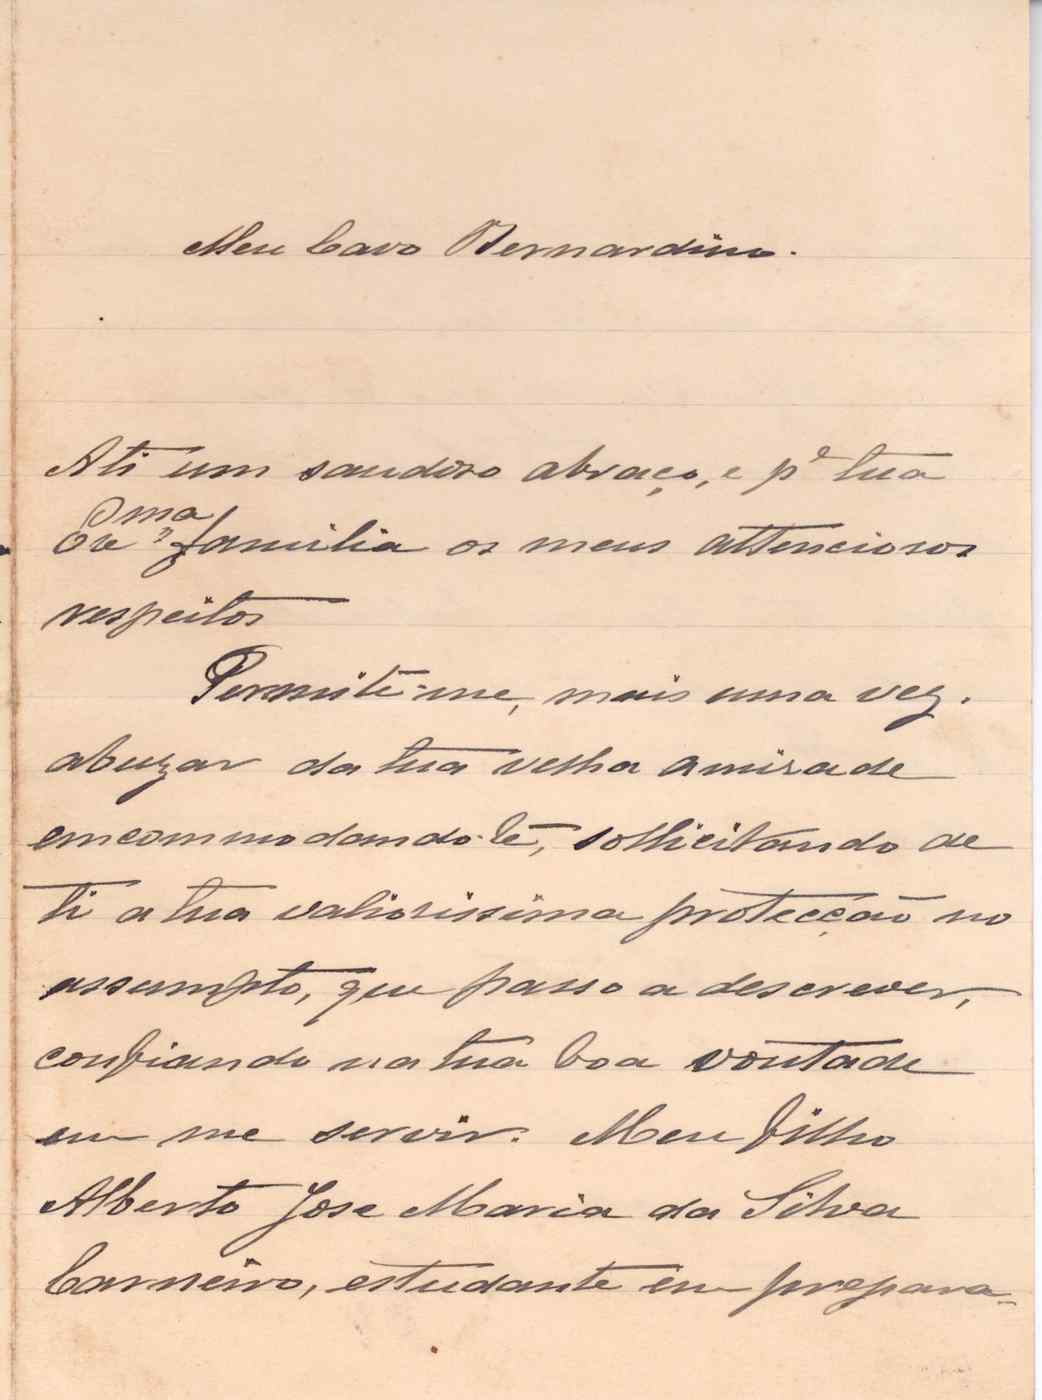 Meu Caro Bernardino.
A ti um saudoso abraço, e pª tua
Exma familia os meus attenciosos
respeitos
Permitte-me, mais uma vez.
abuzar da tua velha amisade
emcommodando-te, sollicitando de
ti a tua valiosissima protecção no
assumpto, que passo a descrever,
confiando na tua boa vontade
em me servir. Meu filho
Alberto Jose Maria da Silva
Carneiro, estudante em prepara-